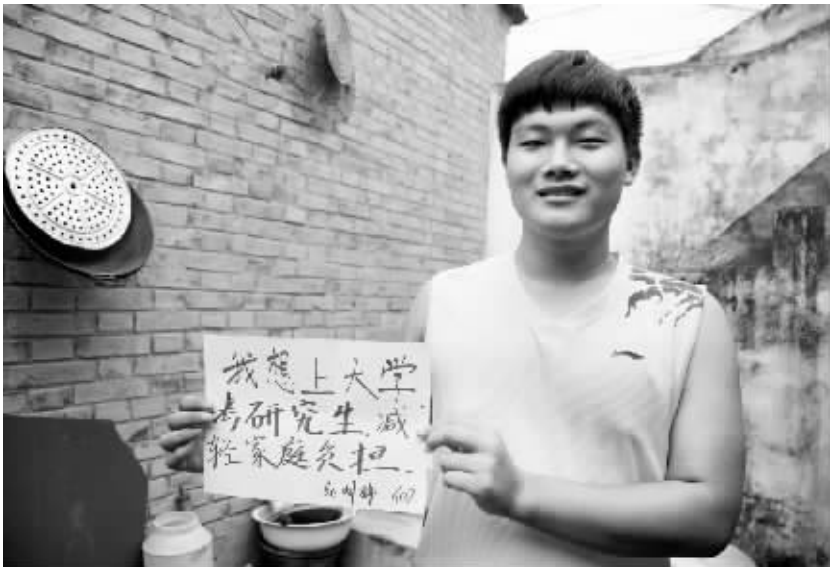 我想上大学
考研究生.减
轻家庭负担.